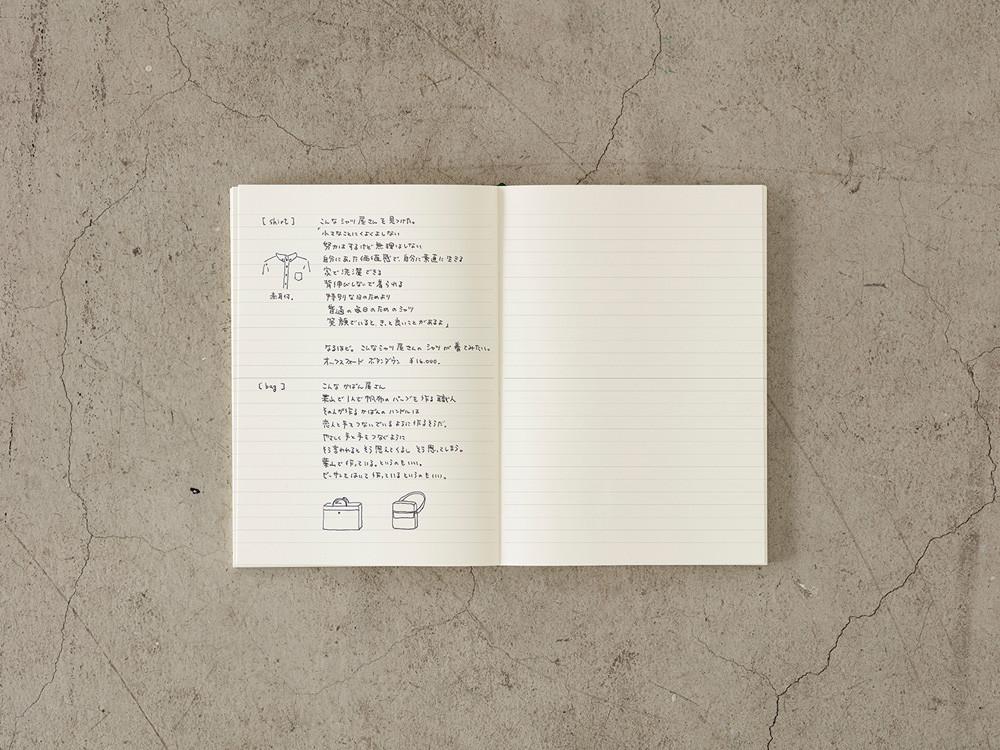 [shirt]
こんなシャツ屋さんを見つけた。
「小さなことにくよくよしない
努力はするけど無理はしない
自分にあった価値感で、自分に素直に生きる
家で洗濯できる
背伸びしないで着られる
特別な日のためより
普通の毎日のためのシャツ
笑顔でいると、きっと良いことがあるよ」
なるほど。こんなシャツ屋さんのシャツが着てみたい。
オックスフォード ボタンダウン ¥16,000.
[bag]
こんなかばん屋さん
葉山で1人で帆布のバッグを作る職人
その人が作るかばんのハンドルは
恋人と手をつないでいるように作るそうだ。
やさしく手と手をつなぐように
そう言われるとそう思えてくるし そう思ってしまう。
葉山で作っている。というのもいい。
ビーサンをはいて作っているというのもいい。